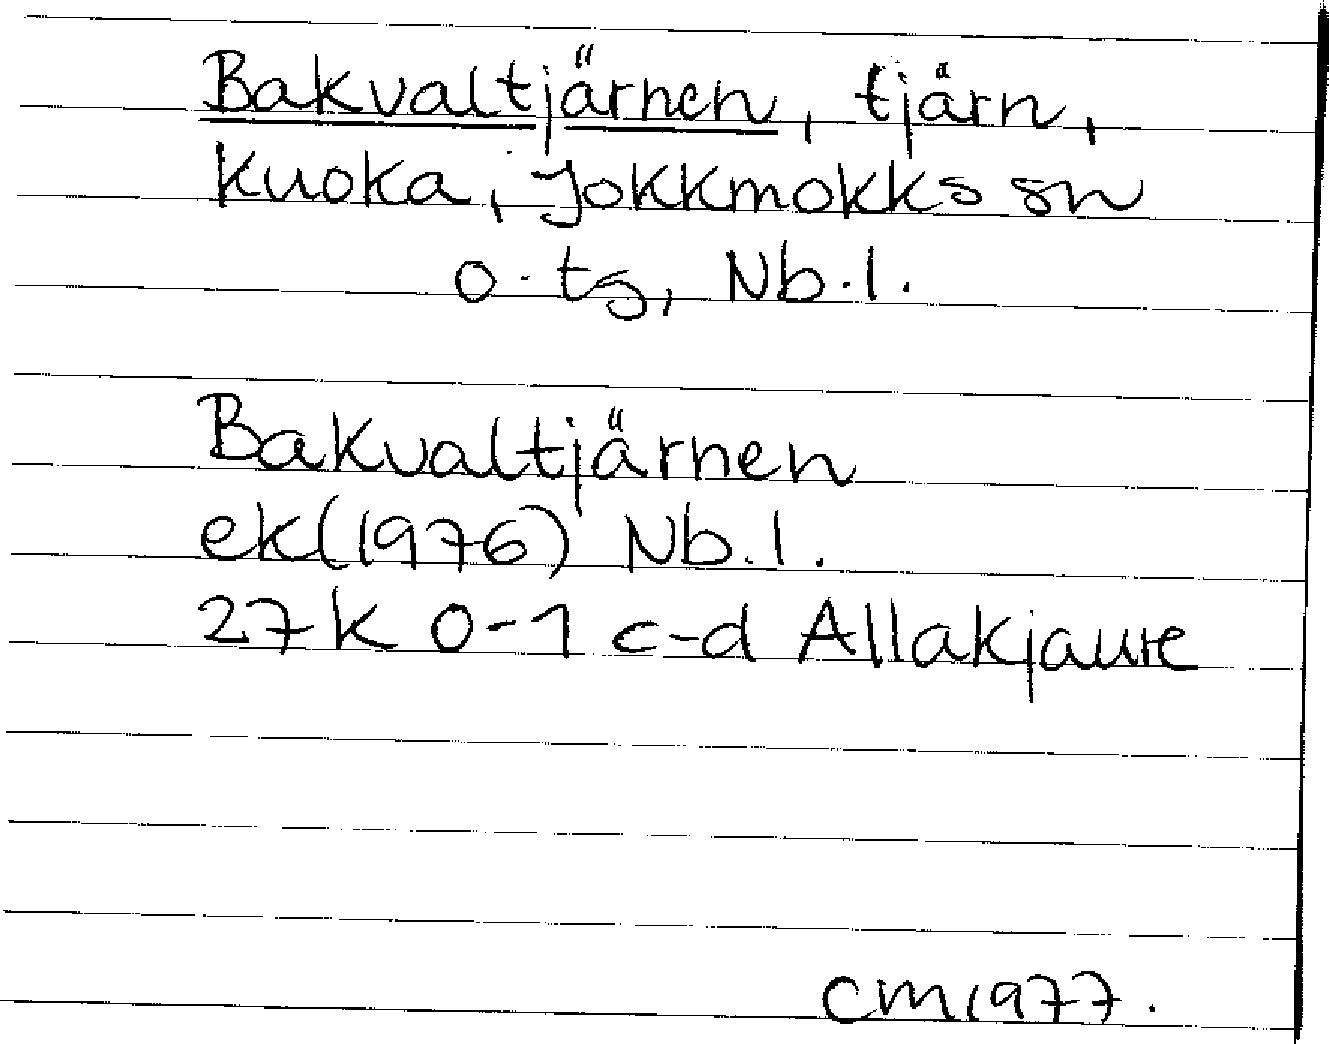 Bakvaltjärnen, tjärn,
Kuoka, Jokkmokks sn
o. ts, Nb.l.
Bakvaltjärnen
ek(1976) Nb.l.
27K 0-1 c-d Allakjaure
CM1977.